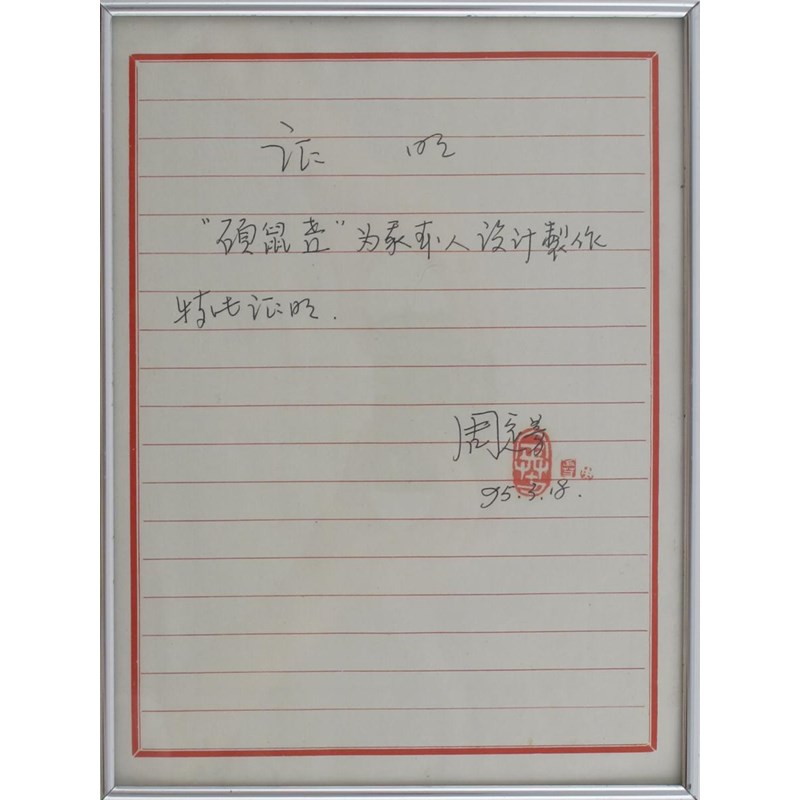 证 明
"硕鼠壶"为我本人设计製作
特此证明.
周定芳
95.3.18.